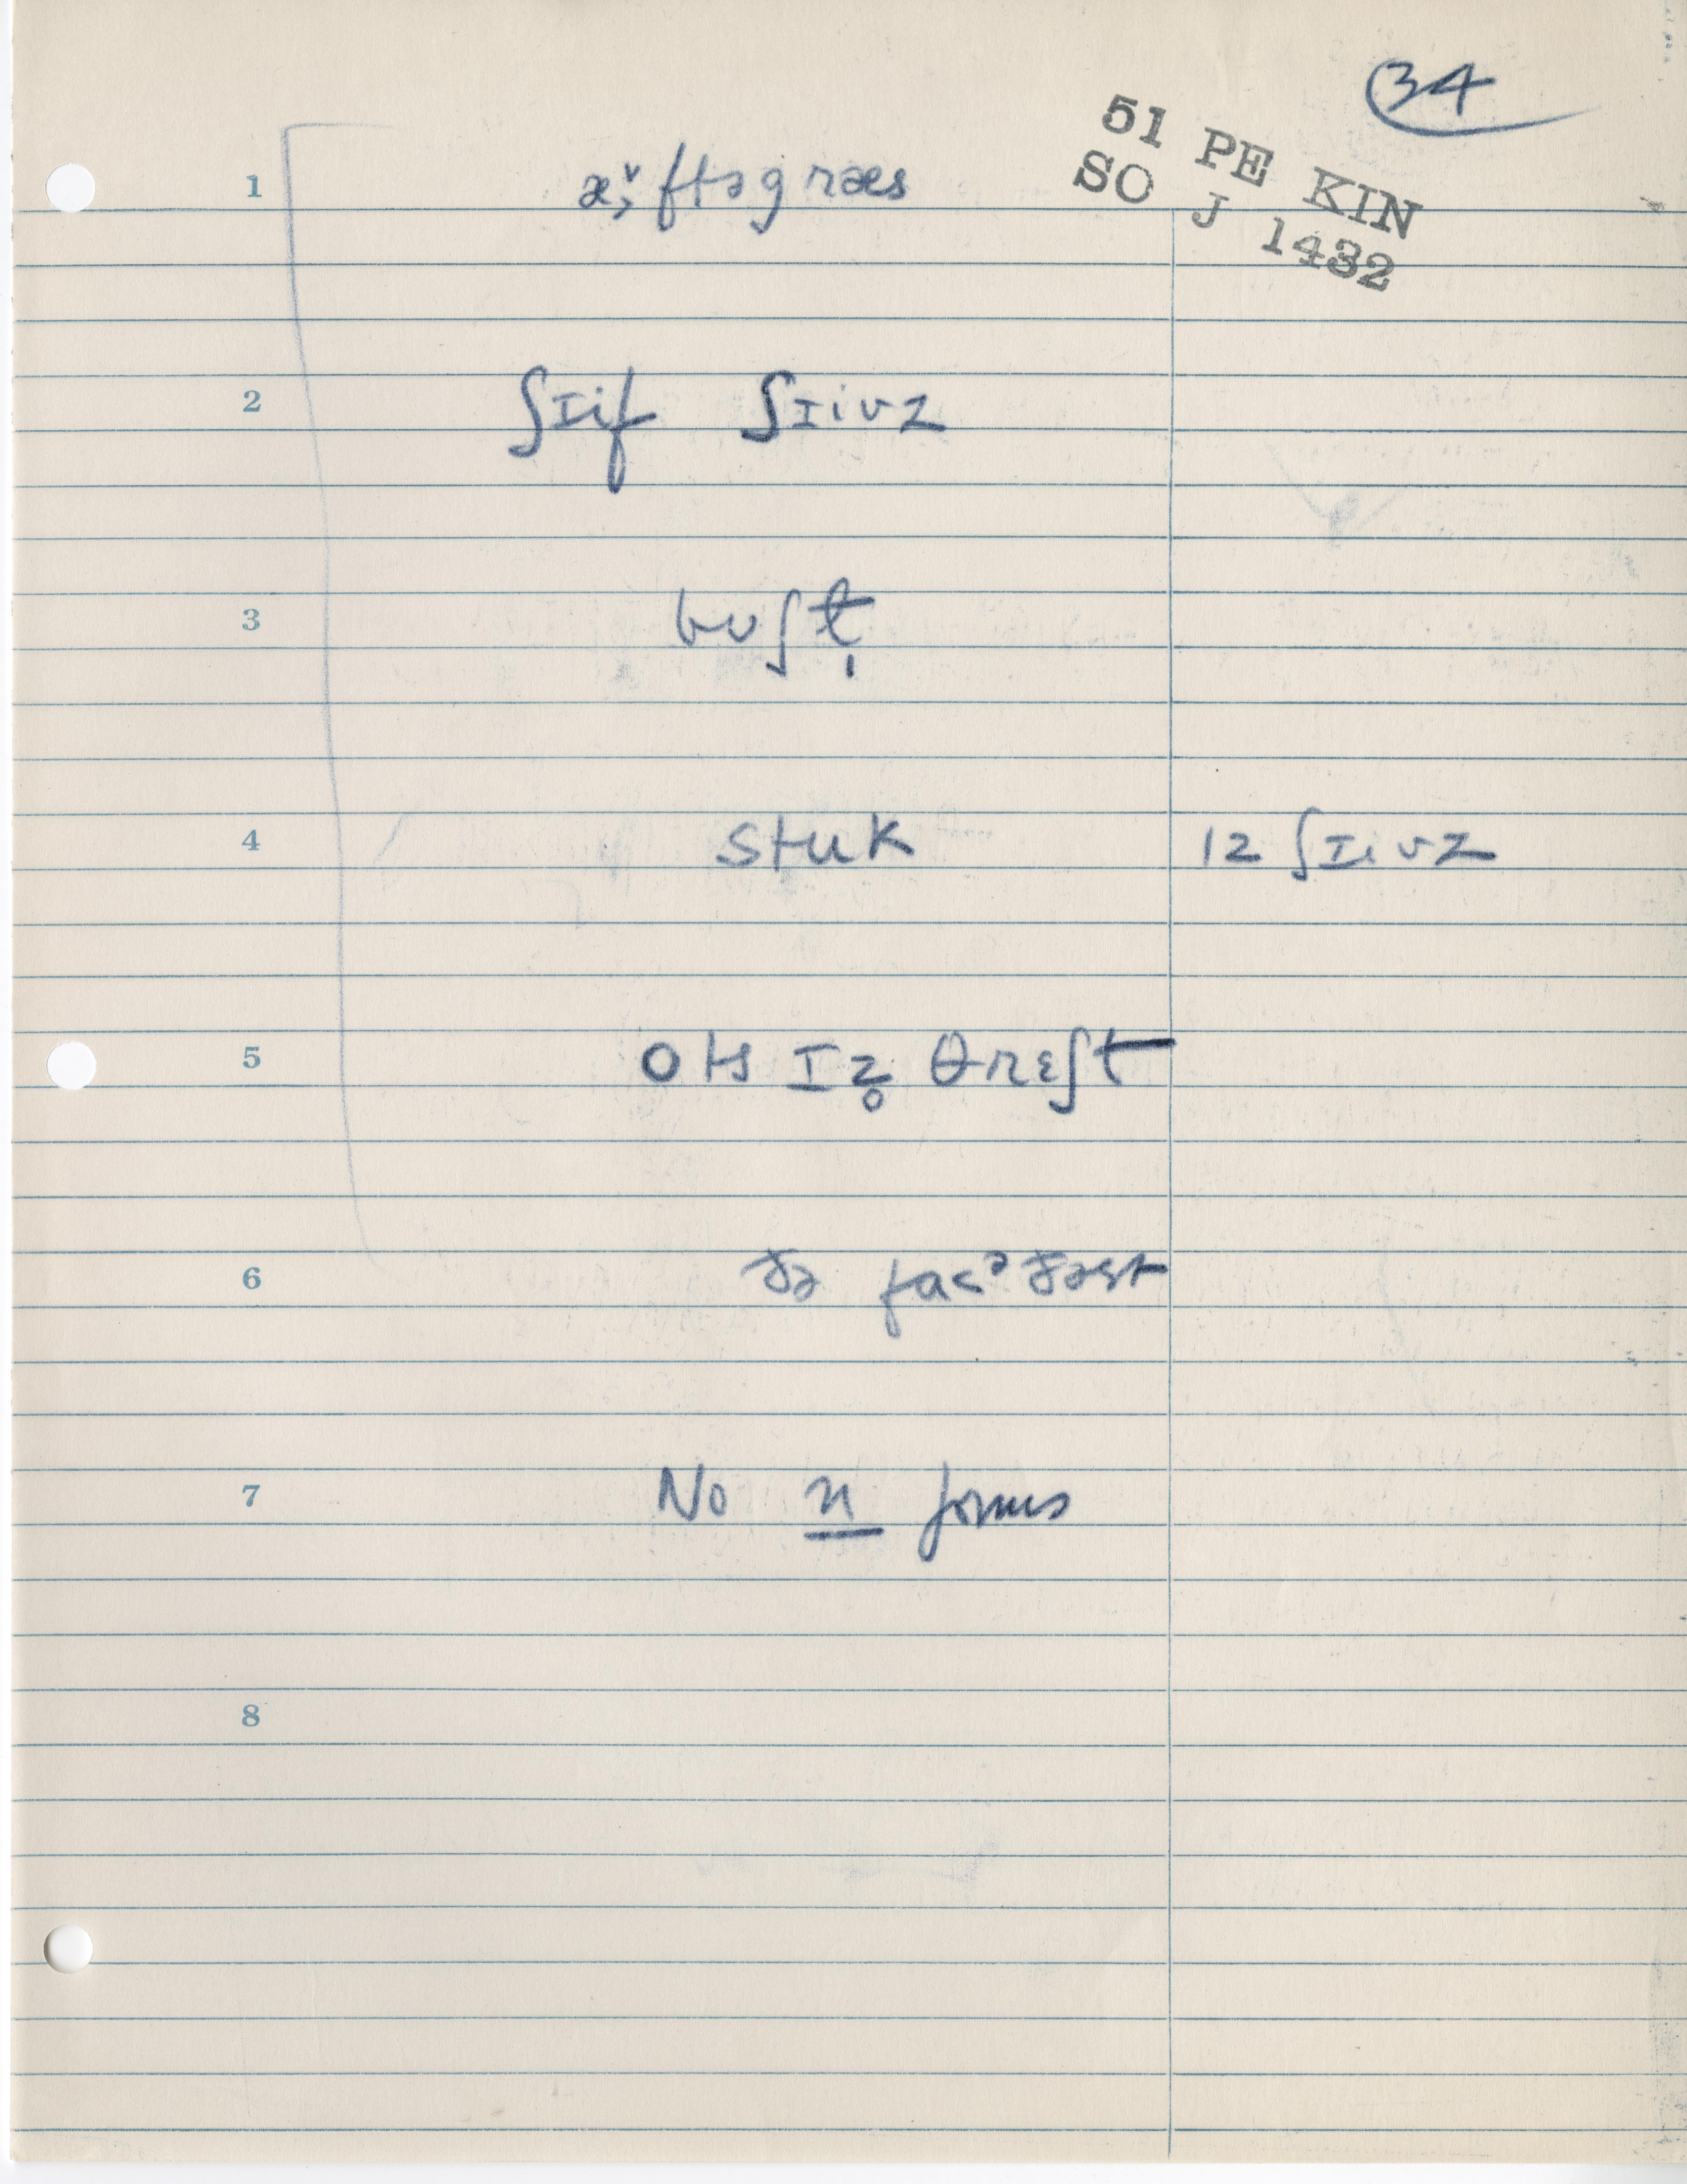 34
51 PE KIN
SO J 1432
1 æ̌ftəgræs
2 ʃɪif ʃɪivz
3 buʃt̩
4 stuk 12 ʃɪivz
5 ots ɪz̥ θrɛʃt
6 ðə faɚðəst
7 No n forms
8